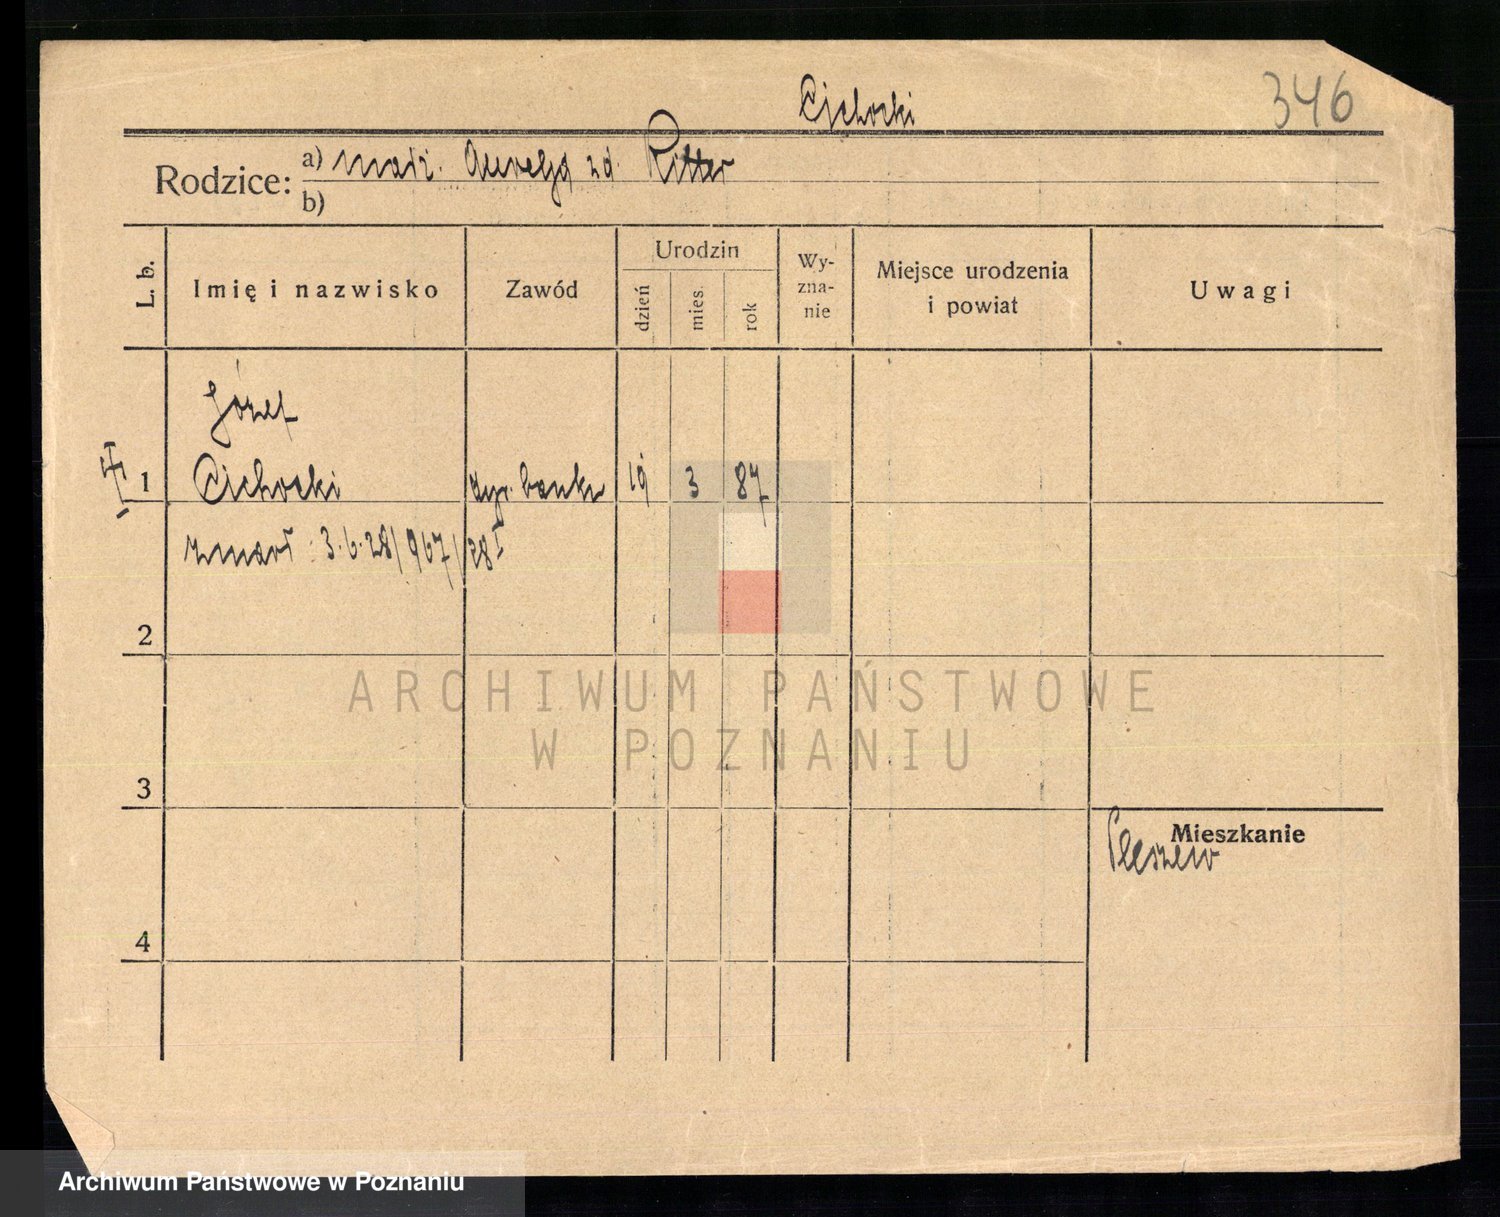 Cichocki
346
Rodzice: a) małż. Aurelja zd. Ritter
b)
L. b.
Imię i nazwisko
Zawód
Urodzin
dzień
mies.
rok
Wy-
zna-
nie
Miejsce urodzenia
i powiat
Uwagi
Józef
1 Cichocki dyr. banku 19 3 87
zmarł 3.6.28/967/28
2
3
4
Mieszkanie
Pleszew
ARCHIWUM PAŃSTWOWE
W POZNANIU
Archiwum Państwowe w Poznaniu